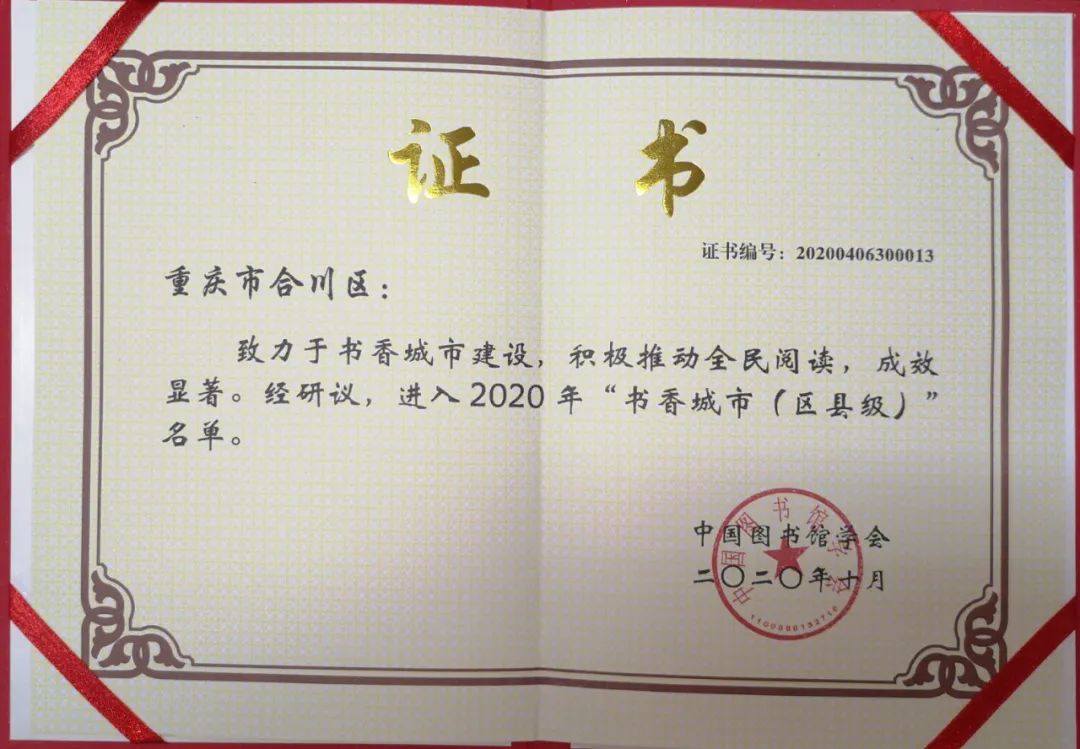 证书
证书编号：20200406300013
重庆市合川区：
致力于书香城市建设，积极推动全民阅读，成效
显著。经研议，进入2020年“书香城市（区县级）”
名单。
中国图书馆学会
二〇二〇年十月
中国图书馆学会